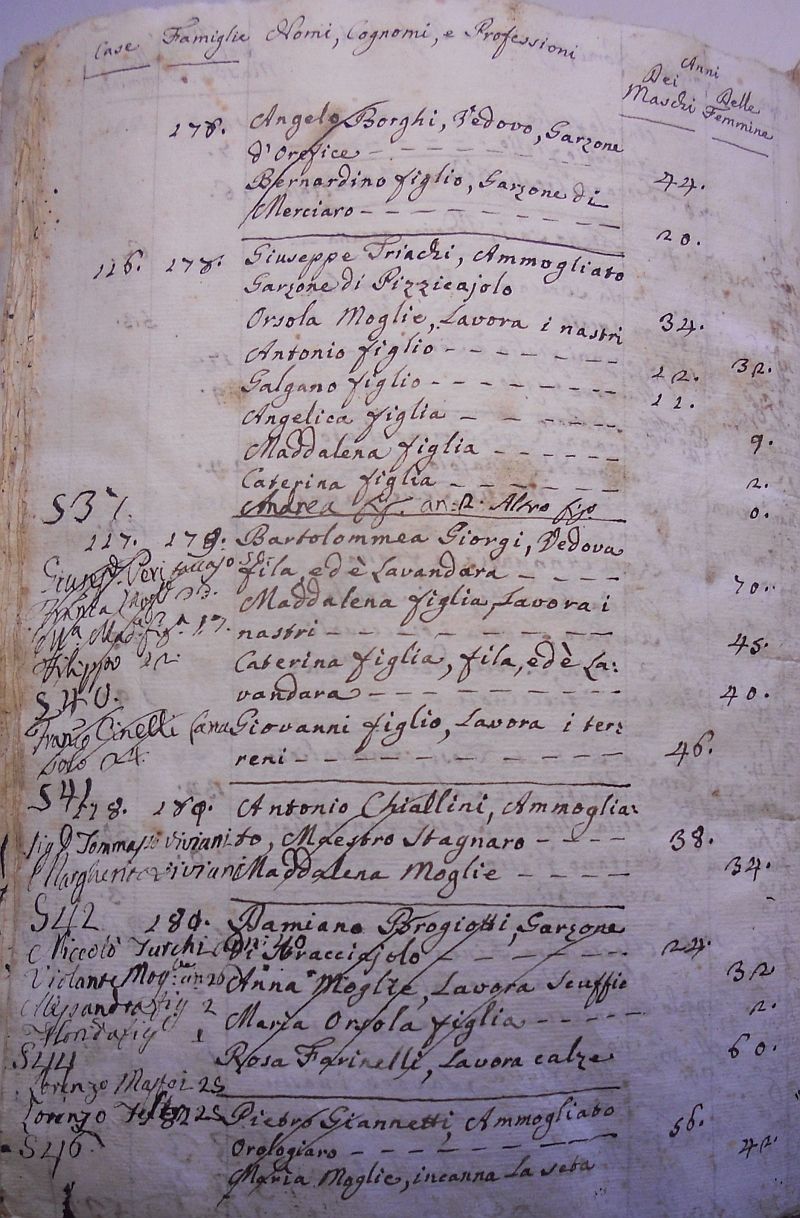 Case Famiglie Nomi, Cognomi, e Professioni Anni
Dei Maschi Delle Femmine
178. Angelo Borghi, Vedovo, Garzone
d'Orefice
Bernardino figlio, Garzone di 44.
Merciaro
20.
116. 178. Giuseppe Triachi, Ammogliato
Garzone di Pizzicajolo
Orsola Moglie, Lavora i nastri 34.
Antonio figlio 32.
Galgano figlio 12.
Angelica figlia 11.
Maddalena figlia 9.
Caterina figlia 2.
S37. Andrea an: 2. Altro 0.
117. 179. Bartolommea Giorgi, Vedova
Giusep. Peri fila, ed è Lavandara 70.
Maddalena figlia, Lavora i
17. nastri 45.
Filippo 22. Caterina figlia, fila, ed è La:
S40. vandara 40.
Franco Cinelli Giovanni figlio, Lavora i ter:
solo reni 46.
S41 118. 180. Antonio Chiallini, Ammoglia:
Sig Tommaso Viviani to, Maestro Stagnaro 38.
Margherita Viviani Maddalena Moglie 34.
S42 181. Damiano Brogiotti, Garzone
Niccolò Turchi di Bracciajolo 24.
Violante Mog. an 20 Anna Moglie, Lavora Scuffie 32
Alessandra fig 2 Maria Orsola figlia 2.
fig 1
S44 Rosa Farinelli, Lavora calze 60.
Lorenzo Maffei 25
Lorenzo 25 182 Pietro Giannetti, Ammogliato
S46. Orologiaro 56.
Maria Moglie, incanna la seta 42.